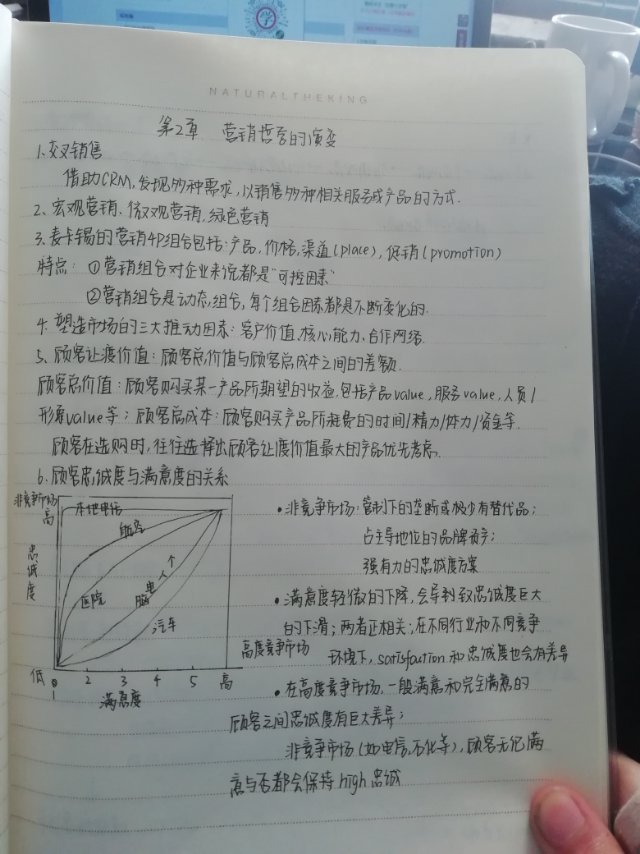 NATURALTHEKING
第2章 营销哲学的演变
1、交叉销售
借助CRM,发现多种需求,以销售多种相关服务或产品的方式.
2、宏观营销、微观营销,绿色营销
3、麦卡锡的营销4P组合包括:产品,价格,渠道(place),促销(promotion)
特点: ①营销组合对企业来说都是"可控因素"
②营销组合是动态组合,每个组合因素都是不断变化的.
4、塑造市场的三大推动因素:客户价值,核心能力,合作网络.
5、顾客让渡价值:顾客总价值与顾客总成本之间的差额.
顾客总价值:顾客购买某一产品所期望的收益,包括产品value,服务value,人员/
形象value等;顾客总成本:顾客购买产品所耗费的时间/精力/体力/资金等.
顾客在选购时,往往选择出顾客让渡价值最大的产品优先考虑.
6、顾客忠诚度与满意度的关系
非竞争市场
高
忠诚度
低
本地电话
航空
医院
个人电脑
汽车
高度竞争市场
1 2 3 4 5 高
满意度
•非竞争市场:管制下的垄断或极少有替代品;
占主导地位的品牌资产;
强有力的忠诚度方案
•满意度轻微的下降,会导致忠诚度巨大
的下滑;两者正相关;在不同行业和不同竞争
环境下,satisfaction和忠诚度也会有差异
•在高度竞争市场、一般满意和完全满意的
顾客之间忠诚度有巨大差异;
非竞争市场(如电信,石化等),顾客无论满
意与否都会保持high忠诚